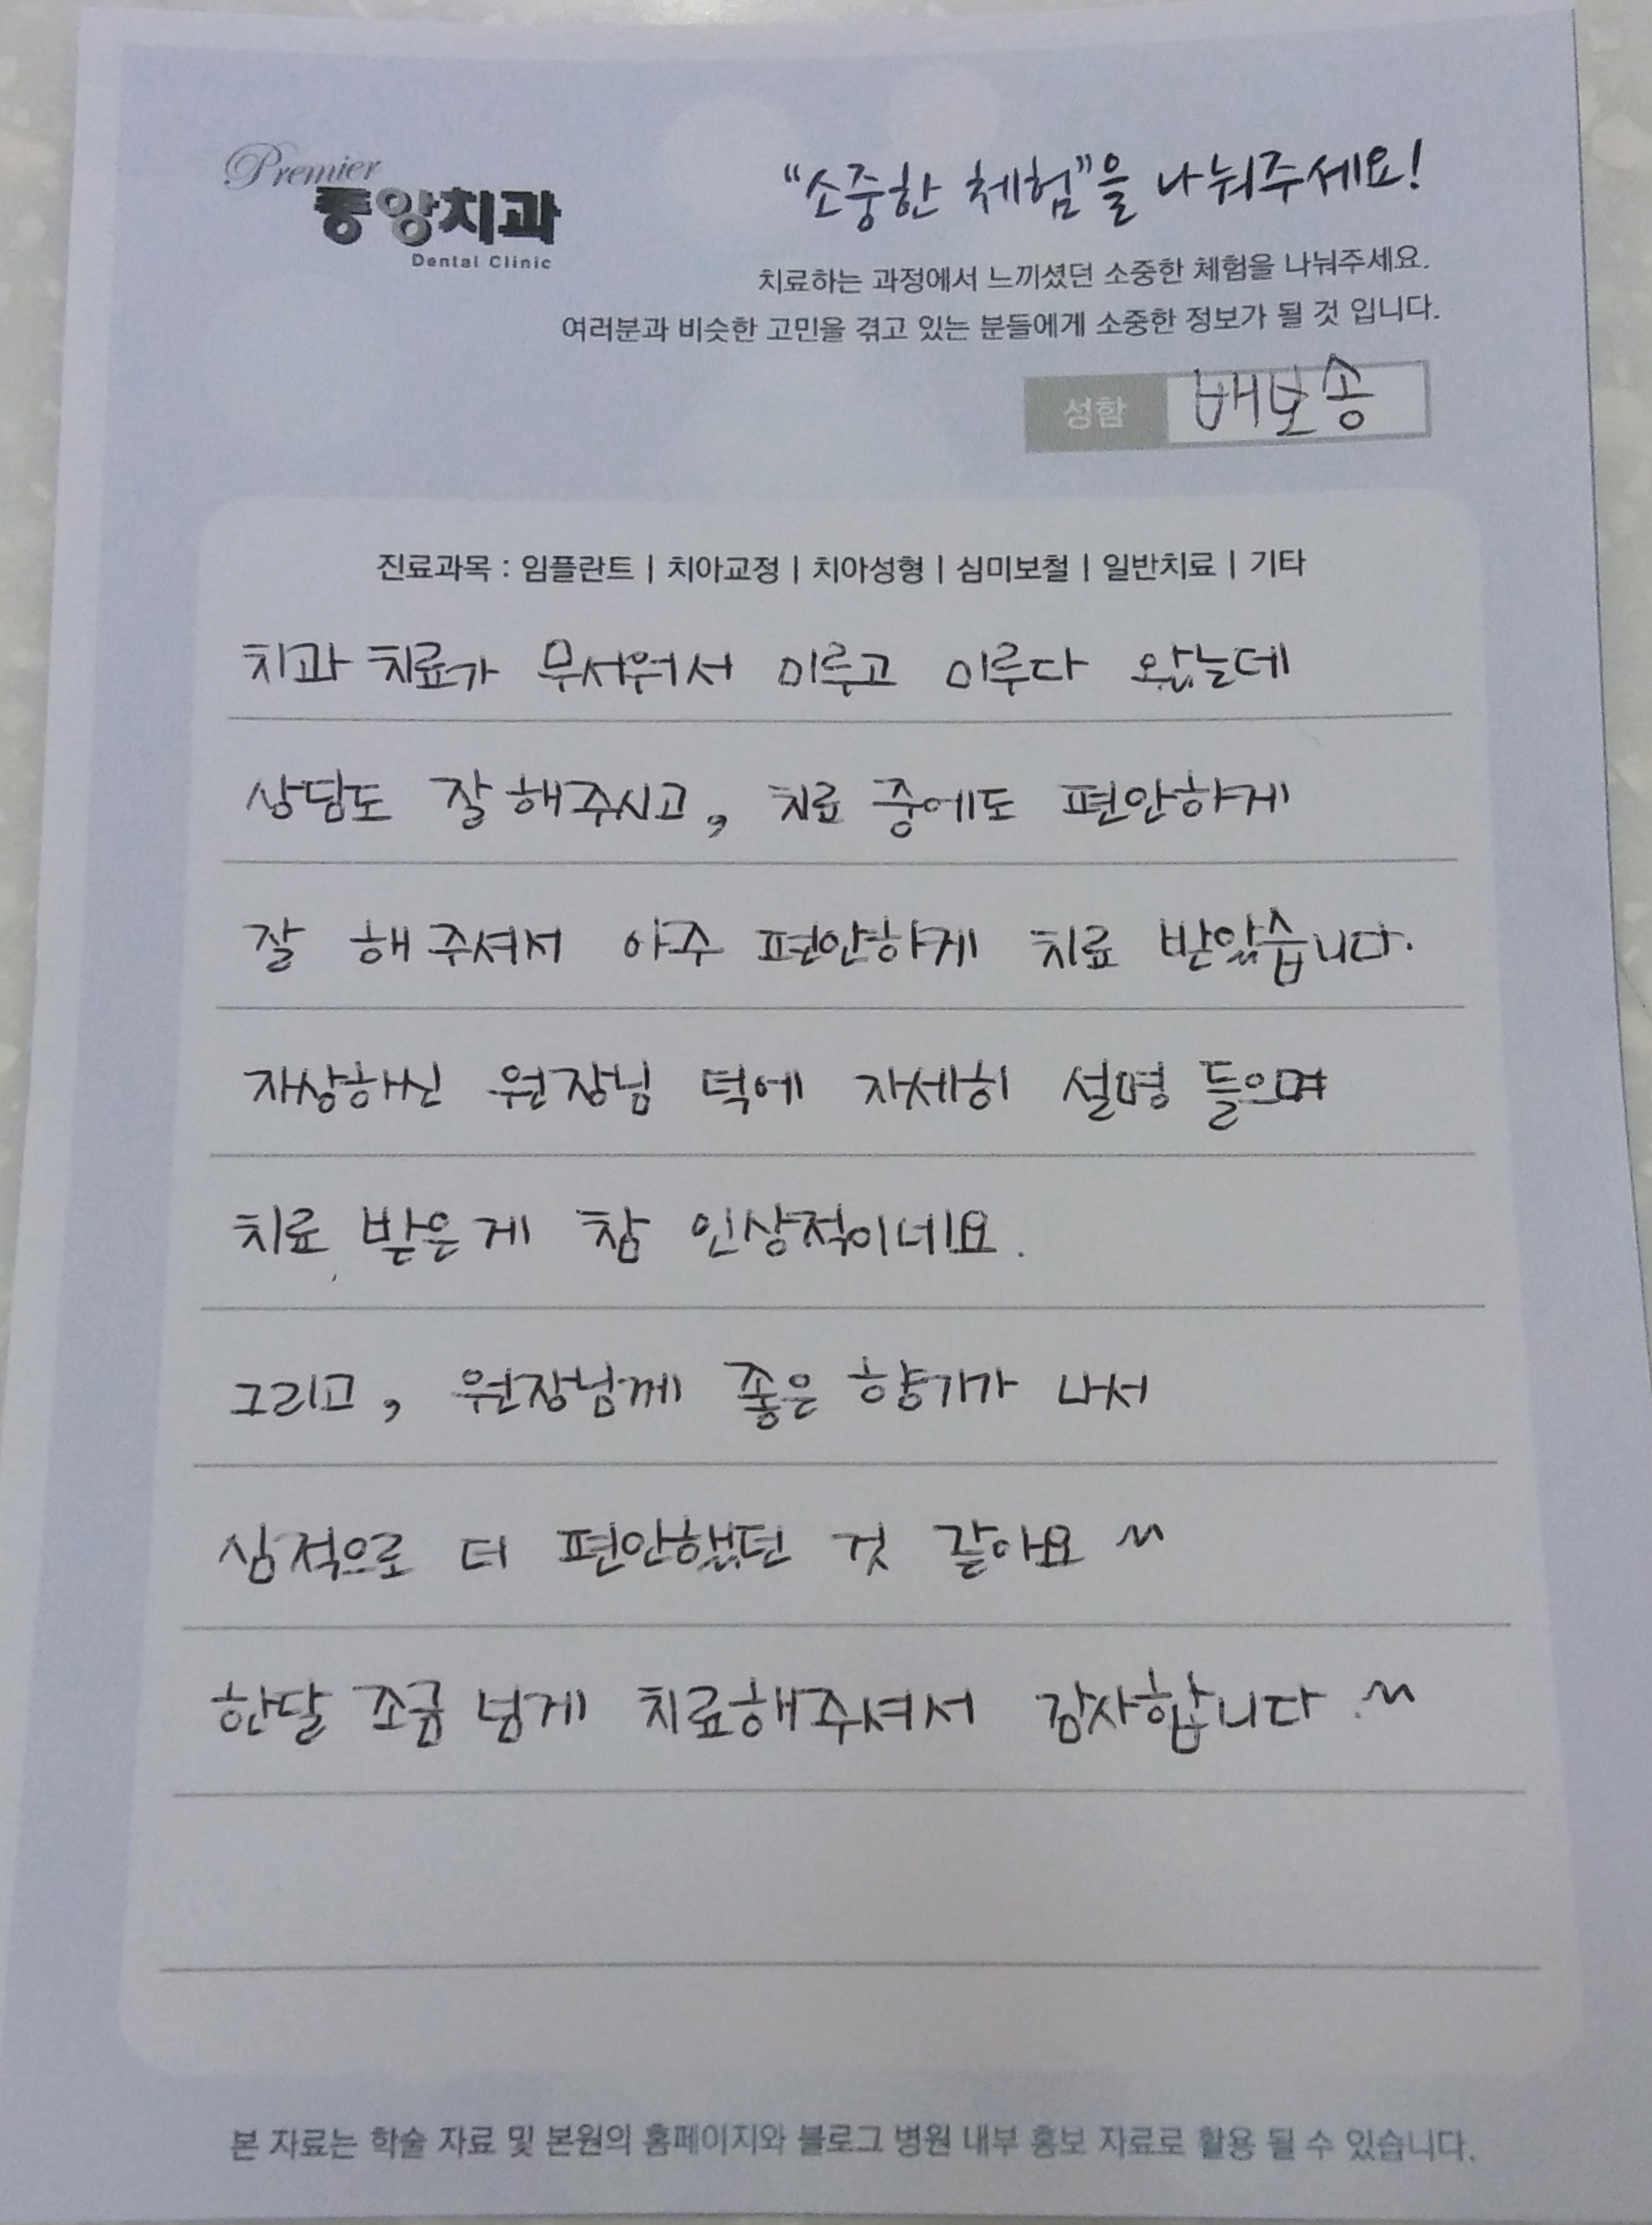 Premier
중앙치과
Dental Clinic
"소중한 체험"을 나눠주세요!
치료하는 과정에서 느끼셨던 소중한 체험을 나눠주세요.
여러분과 비슷한 고민을 겪고 있는 분들에게 소중한 정보가 될 것 입니다.
성함 배보송
진료과목 : 임플란트 | 치아교정 | 치아성형 | 심미보철 | 일반치료 | 기타
치과 치료가 무서워서 미루고 미루다 왔는데
상담도 잘 해주시고, 치료 중에도 편안하게
잘 해주셔서 아주 편안하게 치료 받았습니다.
자상하신 원장님 덕에 자세히 설명 들으며
치료 받은게 참 인상적이네요.
그리고, 원장님께 좋은 향기가 나서
심적으로 더 편안했던 것 같아요 ~
한달 조금 넘게 치료해주셔서 감사합니다.~
본 자료는 학술 자료 및 본원의 홈페이지와 블로그 병원 내부 홍보 자료로 활용 될 수 있습니다.